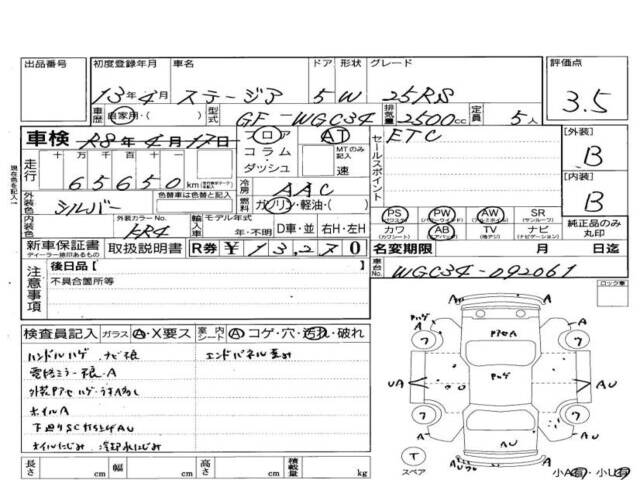 出品番号 初度登録年月 車名 ドア 形状 グレード 評価点
13年4月 ステージア 5 W 25RS 3.5
車歴 自家用・( ) 型式 GF-WGC34 排気量 2500cc 定員 5人
車検 R8年4月17日 フロア AT セールスポイント ETC [外装] B
走行 十万 万 千 百 十 65650km コラム・ダッシュ MTのみ記入 速
現在色を記入
外装色 シルバー 色替車は色替と記入 冷房 AAC [内装] B
燃料 ガソリン・軽油・( )
内装色 外装カラーNo. KR4 輸入車 モデル年式 年・不明 D車・並 右H・左H
PS PW AW SR 純正品のみ丸印
(パワステ) (パワーウィンドウ) (アルミホイル) (サンルーフ)
カワ AB TV ナビ
(カワシート) (エアバッグ) (後テレビ) (ナビゲーション)
新車保証書 取扱説明書 R券 ¥13,270 名変期限 月 日迄
ディーラー捺印あるもの
車台No. WGC34-092061
注意事項 後日品[ ]
不具合箇所等
ロック車
検査員記入 ガラス A・X要ス 室内 シート A コゲ・穴・汚れ・破れ
ハンドルハゲ ナビ痕 エンドパネル歪み
電格ミラー痕・A
外装PアセハゲうすAあり
ホイルA
下廻りSCカケ上げAU
オイルにじみ 冷却水にじみ
A A
ワ PアセA ワ
A A
UA Pハゲ AU
ワ ワ
A AU
AU AU
T
スペア
小A有・小U有
長さ cm 幅 cm 高さ cm 積載量 kg